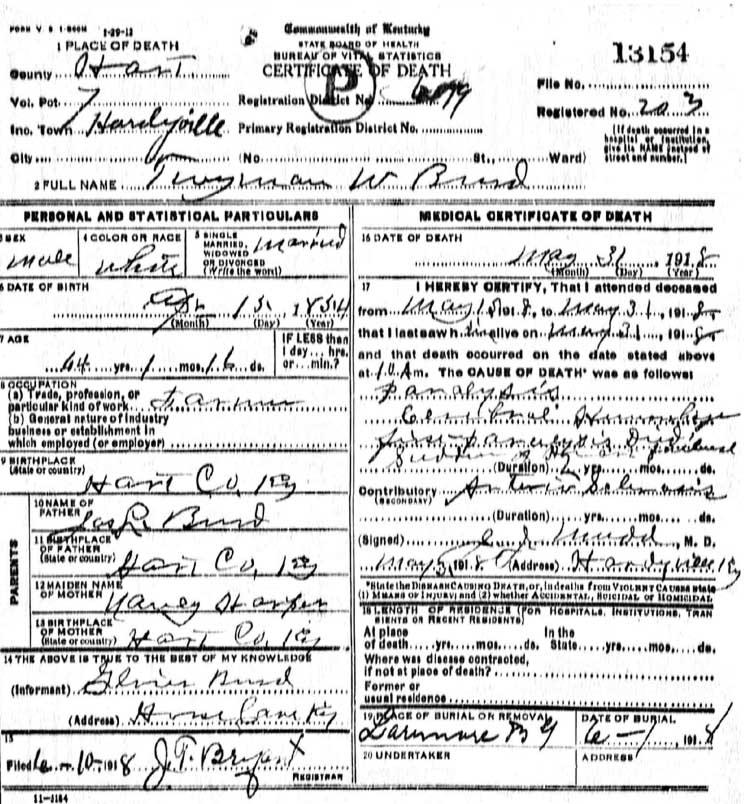 FORM V. S 1-500M 1-29-13
Commonwealth of Kentucky
STATE BOARD OF HEALTH
BUREAU OF VITAL STATISTICS
CERTIFICATE OF DEATH
P
13154
1 PLACE OF DEATH
County Hart
Vol. Pct. 7
Registration District No. 699
File No.
Inc. Town Hardyville
Primary Registration District No.
Registered No. 203
City (No. St., Ward)
(If death occurred in a hospital or institution, give its NAME instead of street and number.)
2 FULL NAME Twyman W Burd
PERSONAL AND STATISTICAL PARTICULARS
3 SEX Male
4 COLOR OR RACE White
5 SINGLE MARRIED, WIDOWED OR DIVORCED (Write the word) Married
6 DATE OF BIRTH
Apr 15 1854
(Month) (Day) (Year)
7 AGE
64 yrs. 1 mos. 16 ds.
IF LESS than 1 day... hrs. or... min.?
8 OCCUPATION
(a) Trade, profession, or particular kind of work Farmer
(b) General nature of industry business or establishment in which employed (or employer)
9 BIRTHPLACE (State or country)
Hart Co, Ky
PARENTS
10 NAME OF FATHER Burd
11 BIRTHPLACE OF FATHER (State or country) Hart Co, Ky
12 MAIDEN NAME OF MOTHER Nancy Harper
13 BIRTHPLACE OF MOTHER (State or country) Hart Co, Ky
14 THE ABOVE IS TRUE TO THE BEST OF MY KNOWLEDGE
(Informant) Burd
(Address) Horse Cave Ky
15
Filed 6-10-1918 J. T. Bryant
REGISTRAR
11-1184
MEDICAL CERTIFICATE OF DEATH
16 DATE OF DEATH
May 31 1918
(Month) (Day) (Year)
17 I HEREBY CERTIFY, That I attended deceased
from May 1918, to May 31, 1918
that I last saw him alive on May 31, 1918
and that death occurred on the date stated above
at 10 Am. The CAUSE OF DEATH* was as follows:
Paralysis
Cerebral
(Duration) yrs. mos. ds.
Contributory (SECONDARY) Arterio Sclerosis
(Duration) yrs. mos. ds.
(Signed) Mudd, M. D.
May 31 1918 (Address) Hardyville Ky
*State the DISEASE CAUSING DEATH, or, in deaths from VIOLENT CAUSES state (1) MEANS OF INJURY; and (2) whether ACCIDENTAL, SUICIDAL OR HOMICIDAL
18 LENGTH OF RESIDENCE (FOR HOSPITALS, INSTITUTIONS, TRANSIENTS OR RECENT RESIDENTS)
At place of death yrs. mos. ds. In the State yrs. mos. ds.
Where was disease contracted, if not at place of death?
Former or usual residence
19 PLACE OF BURIAL OR REMOVAL
DATE OF BURIAL
Larimore B G
6-1 1918
20 UNDERTAKER
ADDRESS